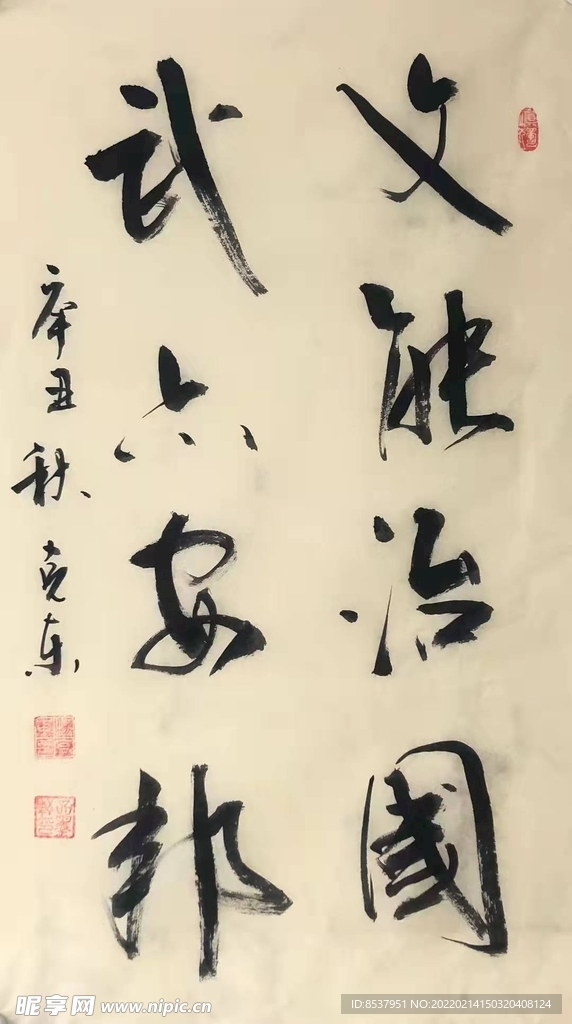 文能治國
武六安邦
辛丑秋 克东
昵享网 www.nipic.cn
ID:8537951 NO:20220214150320408124